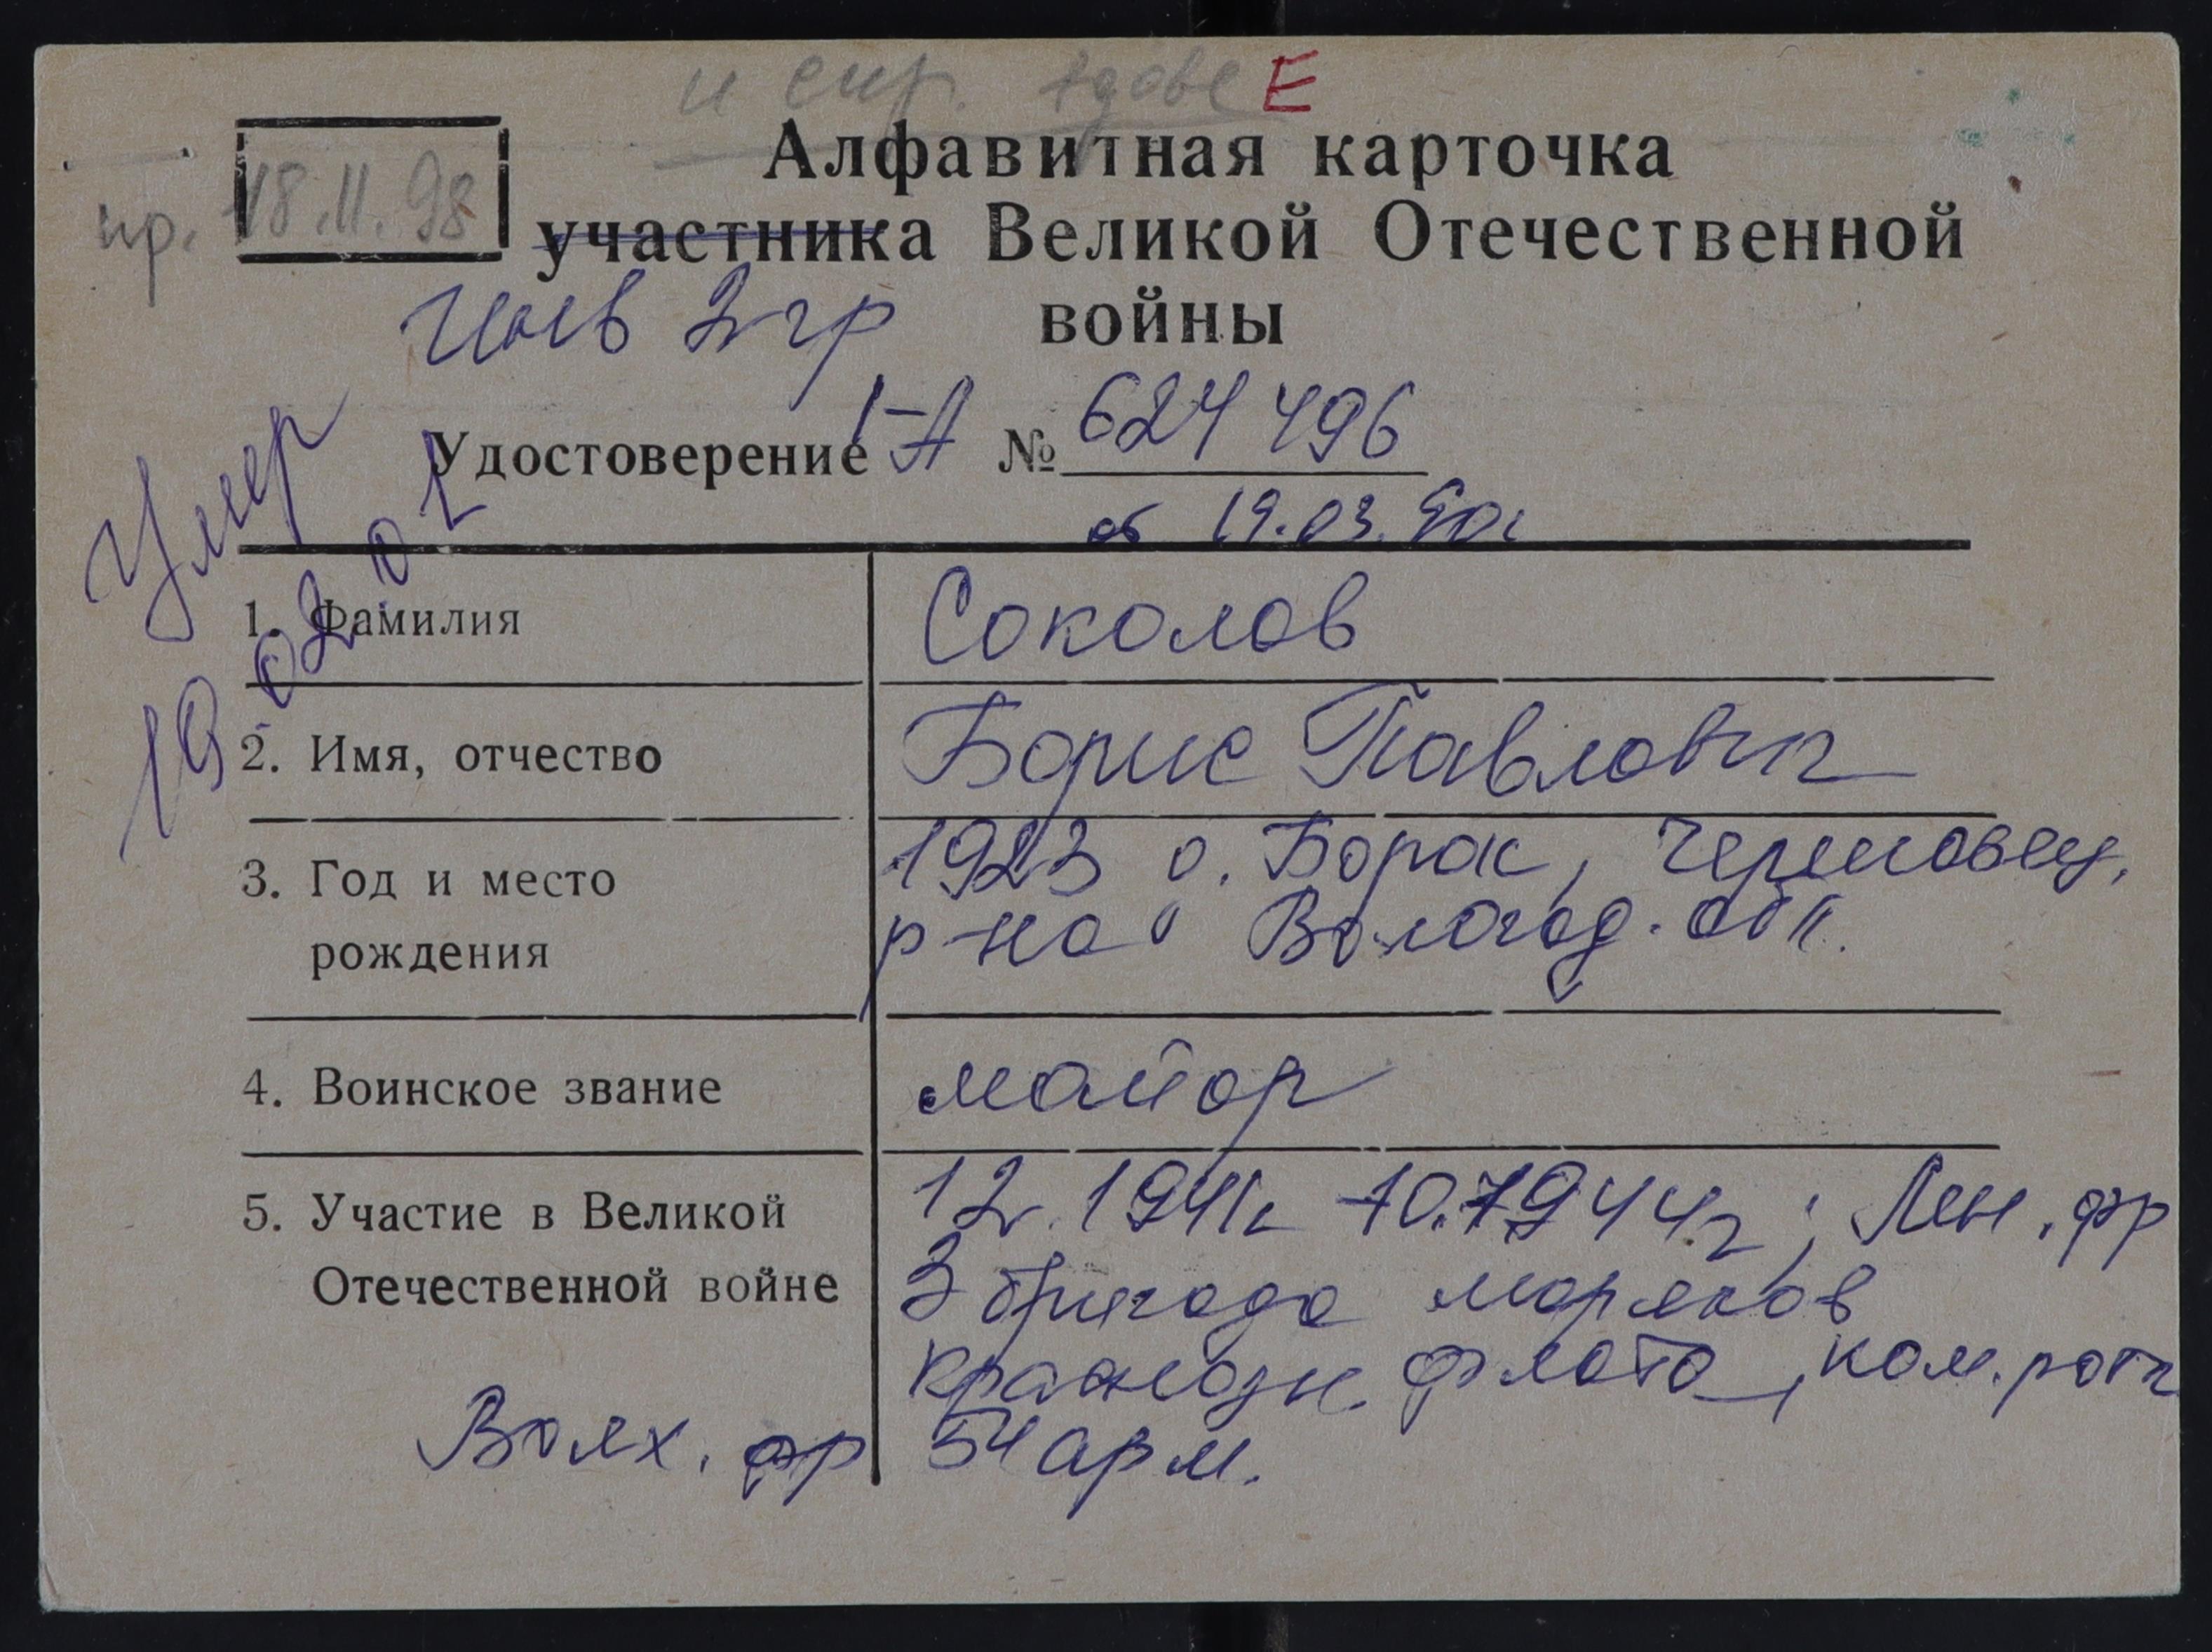 и спр. вдове Е
Алфавитная карточка
пр. 18.11.98
участника Великой Отечественной
Инв 2 гр войны
Удостоверение I-А № 624496
Умер
19.02.01
об 19.03.90г
1. Фамилия Соколов
2. Имя, отчество Борис Павлович
3. Год и место 1923 о. Борок, Череповец.
рождения р-на Вологод. обл.
4. Воинское звание майор
5. Участие в Великой 12.1941г 10.1944г; Лен. фр
Отечественной войне 3 бригада моряков
краснозн. флота, ком. роты
Волх. фр 54 арм.